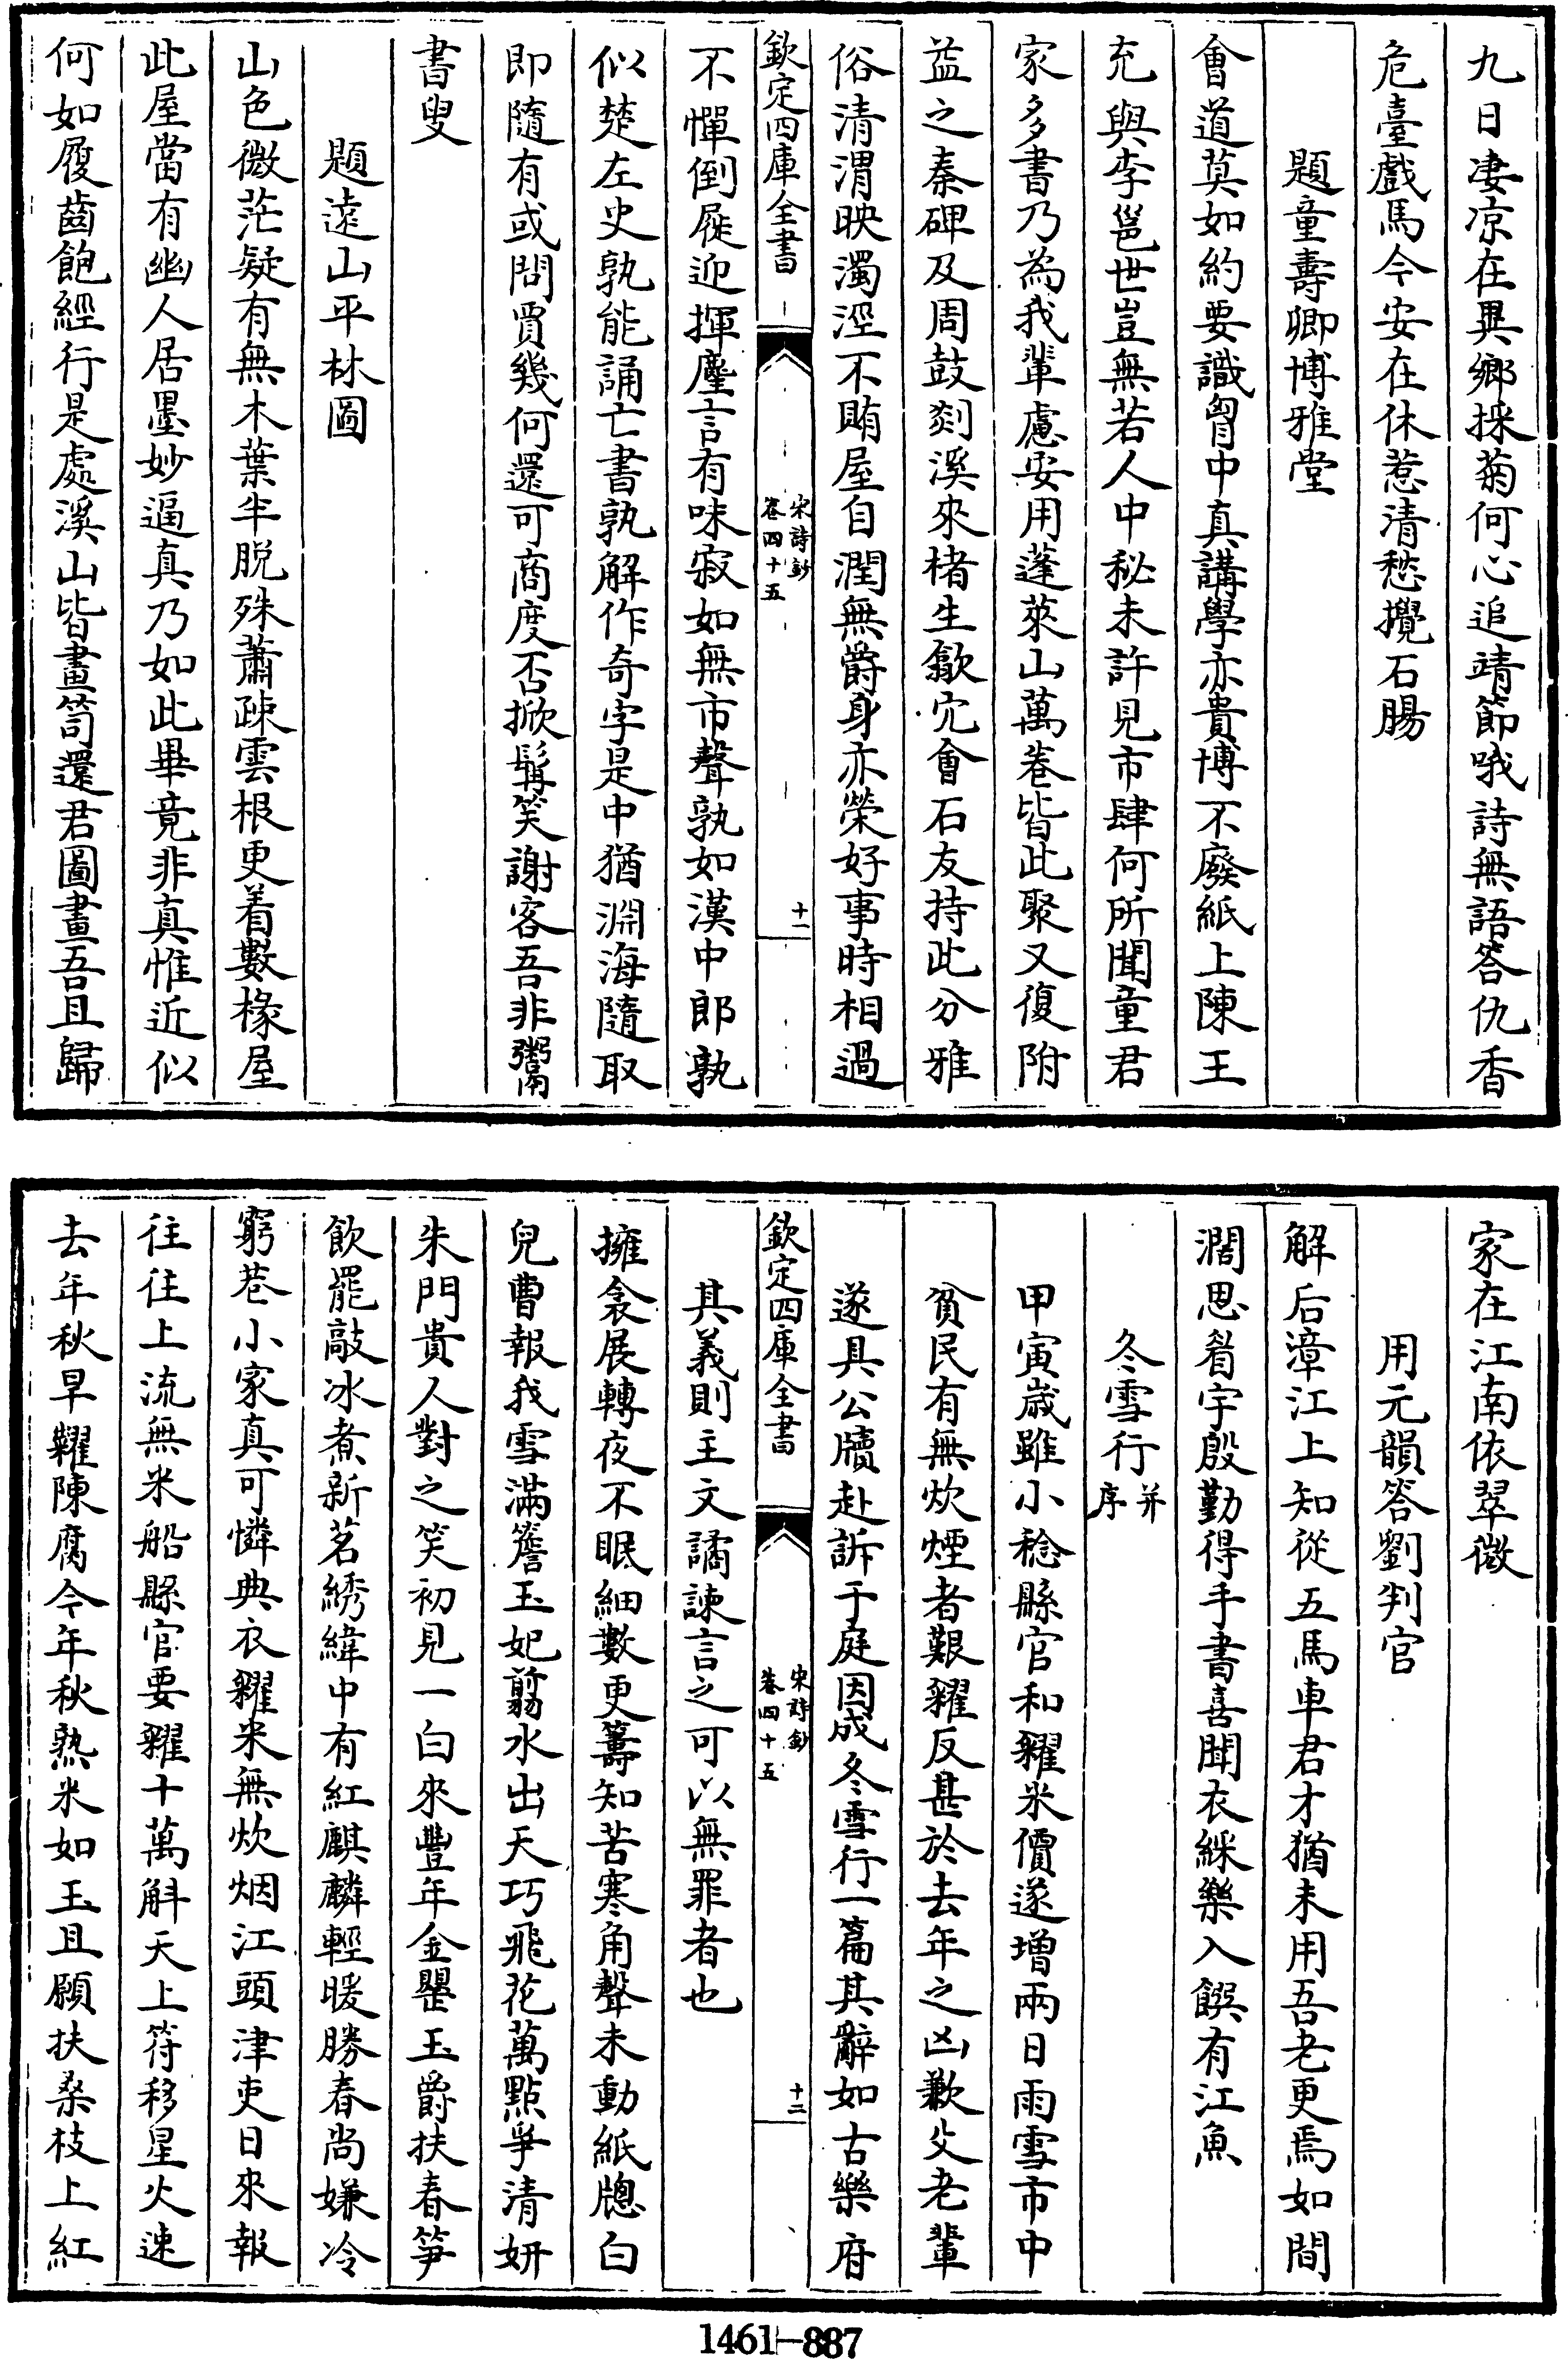 九日凄凉在異鄉採菊何心追靖節哦詩無語答仇香
危臺戲馬今安在休惹清愁攪石腸
題童壽卿博雅堂
會道莫如約要識胷中真講學亦貴博不廢紙上陳王
充與李邕世豈無若人中秘未許見市肆何所聞童君
家多書乃為我輩慮安用蓬萊山萬卷皆此聚又復附
益之秦碑及周鼓剡溪來楮生歙穴會石友持此分雅
俗清渭映濁涇不賄屋自潤無爵身亦榮好事時相過
欽定四庫全書
宋詩鈔
卷四十五
十一
不憚倒屣迎揮麈言有味寂如無市聲孰如漢中郎孰
似楚左史孰能誦亡書孰解作奇字是中猶淵海隨取
即隨有或問賈幾何還可商度否掀髯笑謝客吾非鬻
書叟
題遠山平林圖
山色微茫疑有無木葉半脱殊蕭疎雲根更着數椽屋
此屋當有幽人居墨妙逼真乃如此畢竟非真惟近似
何如履齒飽經行是處溪山皆畫笥還君圖畫吾且歸
家在江南依翠微
用元韻答劉判官
解后漳江上知從五馬車君才猶未用吾老更焉如間
濶思眉宇殷勤得手書喜聞衣綵樂入饌有江魚
冬雪行并序
甲寅歲雖小稔縣官和糴米價遂增兩日雨雪市中
貧民有無炊煙者艱糴反甚於去年之凶歉父老輩
遂具公牘赴訴于庭因成冬雪行一篇其辭如古樂府
欽定四庫全書
宋詩鈔
卷四十五
十二
其義則主文譎諫言之可以無罪者也
擁衾展轉夜不眠細數更籌知苦寒角聲未動紙牕白
兒曹報我雪滿簷玉妃翦水出天巧飛花萬點爭清妍
朱門貴人對之笑初見一白來豐年金罍玉爵扶春笋
飲罷敲冰煮新茗綉緯中有紅麒麟輕暖勝春尚嫌冷
窮巷小家真可憐典衣糴米無炊烟江頭津吏日來報
往往上流無米船縣官要糴十萬斛天上符移星火速
去年秋旱糶陳腐今年秋熟米如玉且願扶桑枝上紅
1461-887